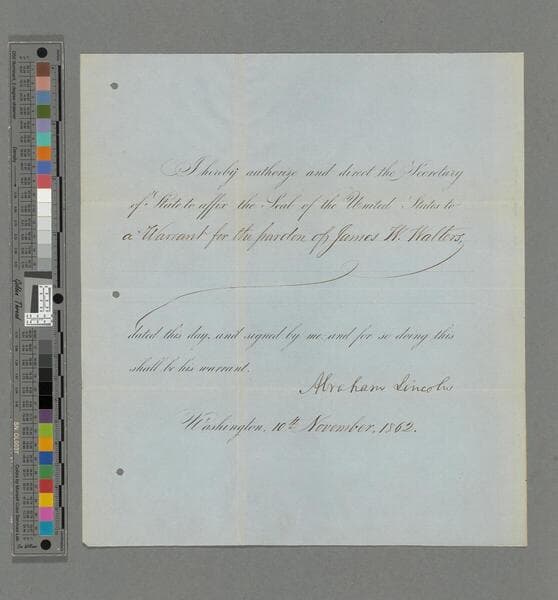 I hereby authorize and direct the Secretary
of State to affix the Seal of the United States to
a Warrant for the pardon of James W. Walters,
dated this day, and signed by me and for so doing this
shall be his warrant.
Abraham Lincoln
Washington, 10th November, 1862.
Golden Thread